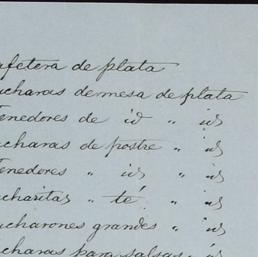 afetera de plata
ucharas de mesa de plata
enedores de id " id
ucharas de postre " id
enedores " id " id
ucharitas " té " id
ucharones grandes " id
ucharas para salsas " id